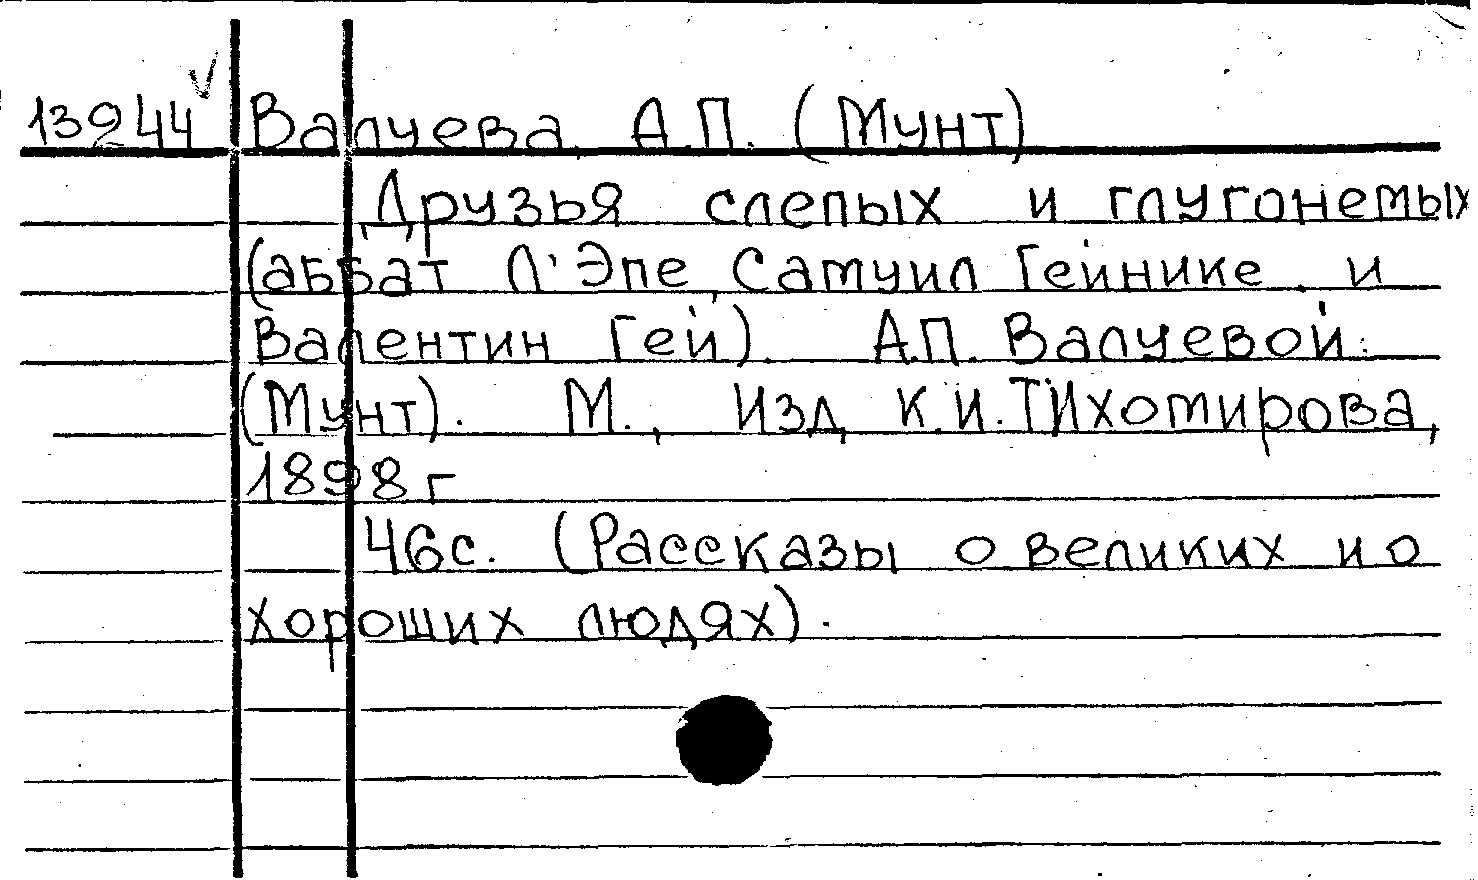 13244 Валуева, А.П. (Мунт)
Друзья слепых и глухонемых
(аббат Л'Эпе, Самуил Гейнике и
Валентин Гей). А.П. Валуевой.
(Мунт). М., Изд. К.И.Тихомирова,
1898 г
46с. (Рассказы о великих и о
хороших людях).